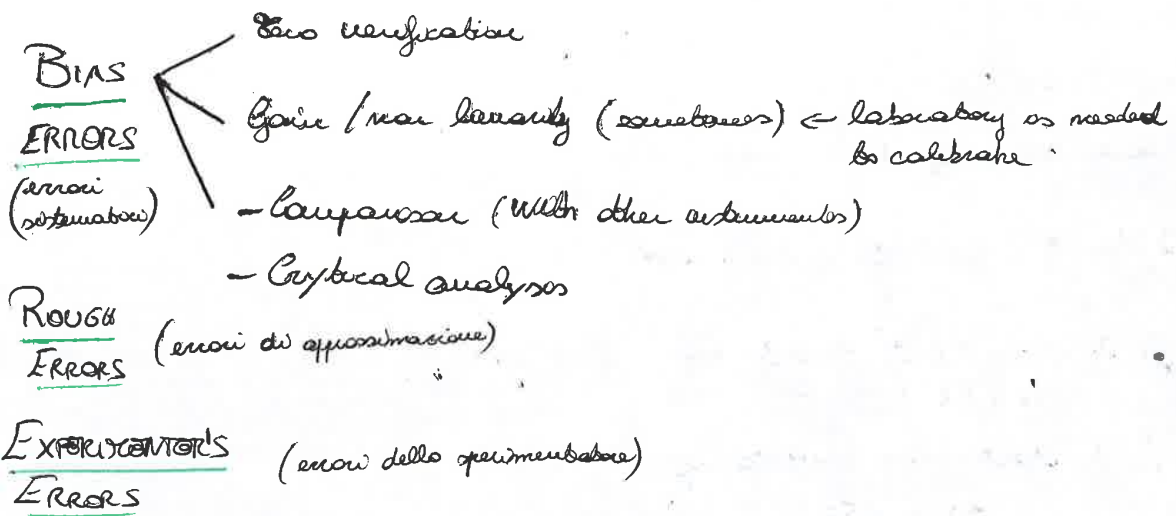 Zero verification
BIAS
ERRORS
(errori
sistematici)
Gain / non linearity (sometimes) ← laboratory is needed
to calibrate.
- Comparison (with other instruments)
- Crytical analysis
ROUGH
ERRORS
(errori di approssimazione)
EXPERIMENTOR'S
ERRORS
(errori dello sperimentatore)